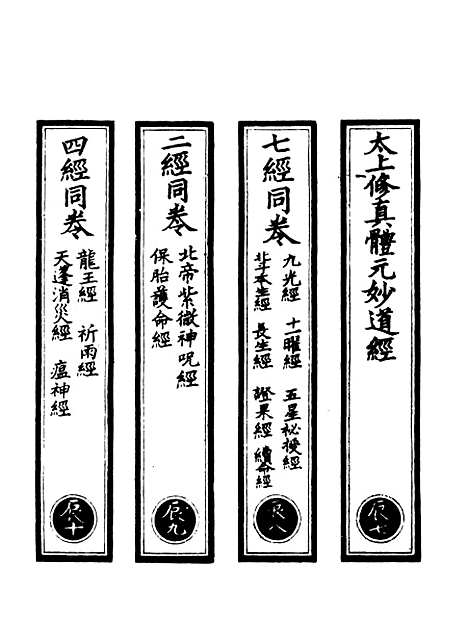 太上修真體元妙道經
辰七
七經同卷
九光經　十一曜經　五星祕授經
北斗本生經　長生經　證果經　續命經
辰八
二經同卷
北帝紫微神呪經
保胎護命經
辰九
四經同卷
龍王經　祈雨經
天蓬消災經　瘟神經
辰十